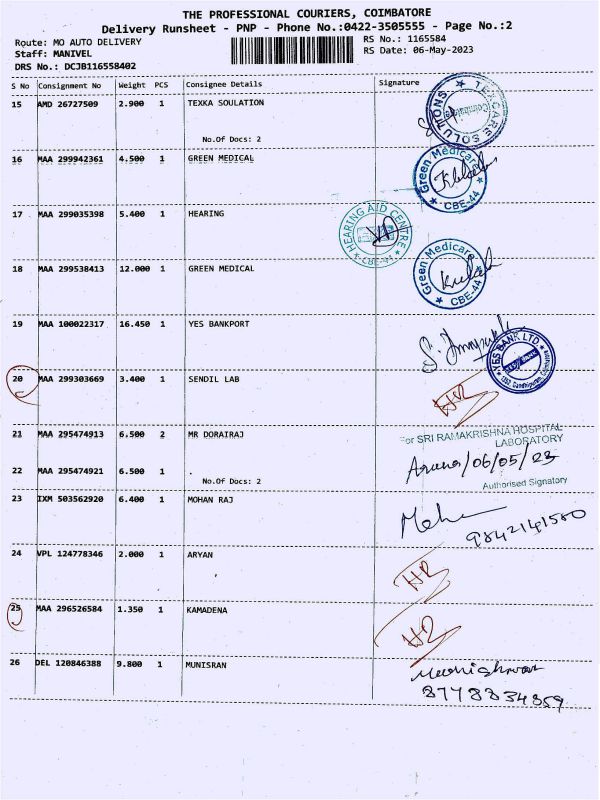 THE PROFESSIONAL COURIERS, COIMBATORE
Delivery Runsheet - PNP - Phone No.:0422-3505555 - Page No.:2
Route: MO AUTO DELIVERY
Staff: MANIVEL
DRS No.: DCJB116558402
RS No.: 1165584
RS Date: 06-May-2023
S No Consignment No Weight PCS Consignee Details Signature
15 AMD 26727509 2.900 1 TEXKA SOULATION
No.Of Docs: 2
TEXCARE SOLUTIONS
Coimbatore
16 MAA 299942361 4.500 1 GREEN MEDICAL
Green Medicare
CBE-44
17 MAA 299035398 5.400 1 HEARING
HEARING AID CENTRE
CBE-44
18 MAA 299538413 12.000 1 GREEN MEDICAL
Green Medicare
CBE-44
19 MAA 100022317 16.450 1 YES BANKPORT
YES BANK LTD
20 MAA 299303669 3.400 1 SENDIL LAB
21 MAA 295474913 6.500 2 MR DORAIRAJ
For SRI RAMAKRISHNA HOSPITAL
LABORATORY
Aruna/06/05/23
22 MAA 295474921 6.500 1
No.Of Docs: 2
Authorised Signatory
23 IXM 503562920 6.400 1 MOHAN RAJ
9842141580
24 VPL 124778346 2.000 1 ARYAN
25 MAA 296526584 1.350 1 KAMADENA
26 DEL 120846388 9.800 1 MUNISRAN